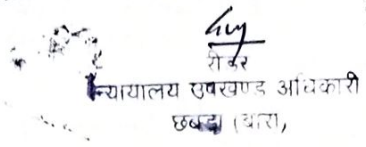 रीडर
न्यायालय उपखण्ड अधिकारी
छबड़ा (बारां,